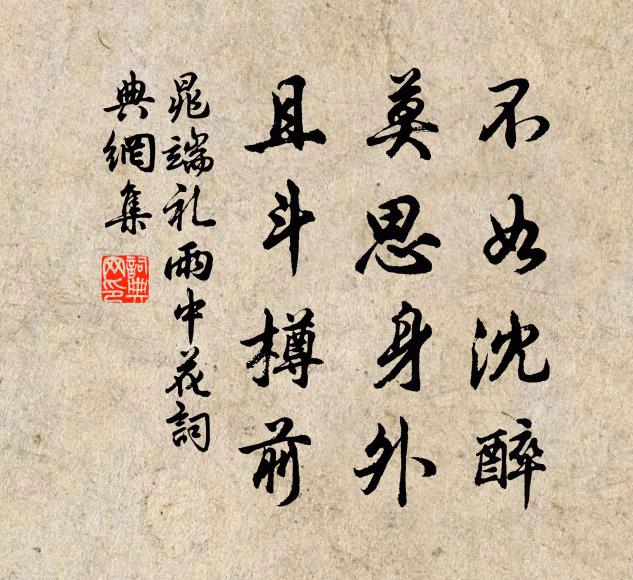 不如沈醉
莫思身外
且斗樽前
晁端礼雨中花詞
典網集
詞典網印